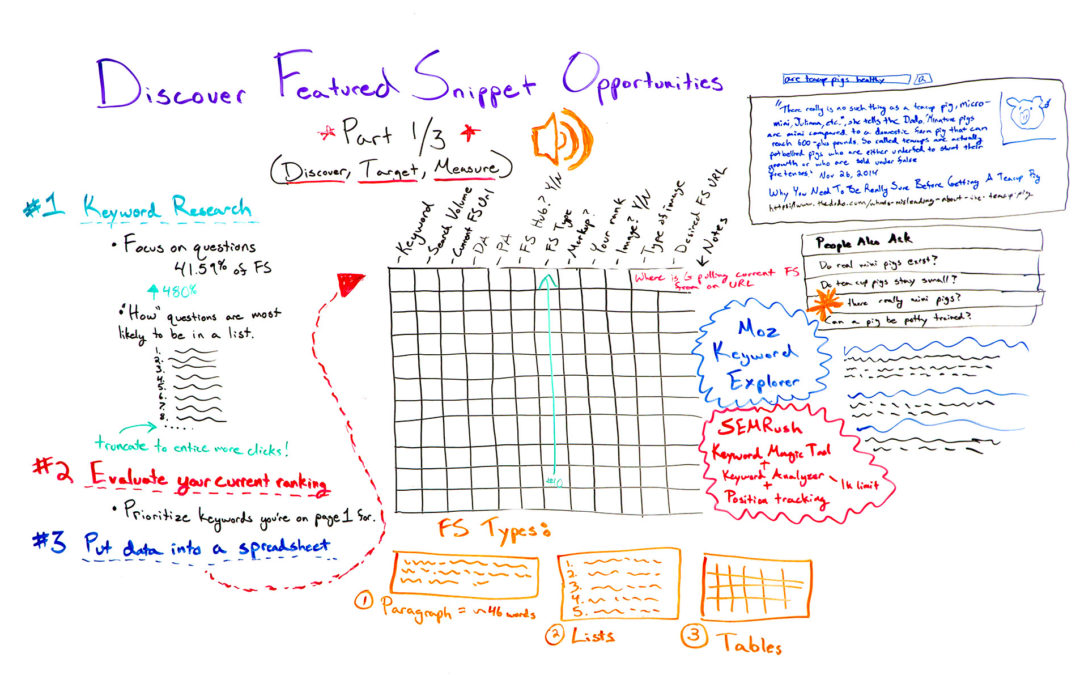 Discover Featured Snippet Opportunities
Part 1/3
(Discover, Target, Measure)
#1 Keyword Research
• Focus on questions
41.59% of FS
↑480%
• "How" questions are most
likely to be in a list.
1.
2.
3.
4.
5.
6.
7.
8.
truncate to entice more clicks!
#2 Evaluate your current ranking
• Prioritize keywords you're on page 1 for.
#3 Put data into a spreadsheet
- Keyword
- Search Volume
- Current FS Url
- DA
- PA
- FS Hub? Y/N
- FS Type
- Markup?
- Your rank
- Image? Y/N
- Type of image
- Desired FS URL
Notes
Where is G pulling current FS
from on URL
FS Types:
① Paragraph = ~46 words
1.
2.
3.
4.
5.
② Lists
③ Tables
Moz
Keyword
Explorer
SEMRush
Keyword Magic Tool
+
Keyword Analyzer - 1k limit
+
Position tracking
are teacup pigs healthy
"There really is no such thing as a teacup pig, micro-
mini, Juliana, etc.", she tells the Dodo. "Minature pigs
are mini compared to a domestic farm pig that can
reach 600-plus pounds. So called teacups are actually
potbellied pigs who are either underfed to stunt their
growth or who are sold under false
pretenses" Nov 26, 2014
Why You Need To Be Really Sure Before Getting A Teacup Pig
https://www.thedodo.com/
People Also Ask
Do real mini pigs exist?
Do tea cup pigs stay small?
there really mini pigs?
Can a pig be potty trained?